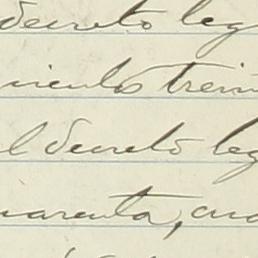 decreto leg
ciento trein
l decreto leg
uarenta, cua